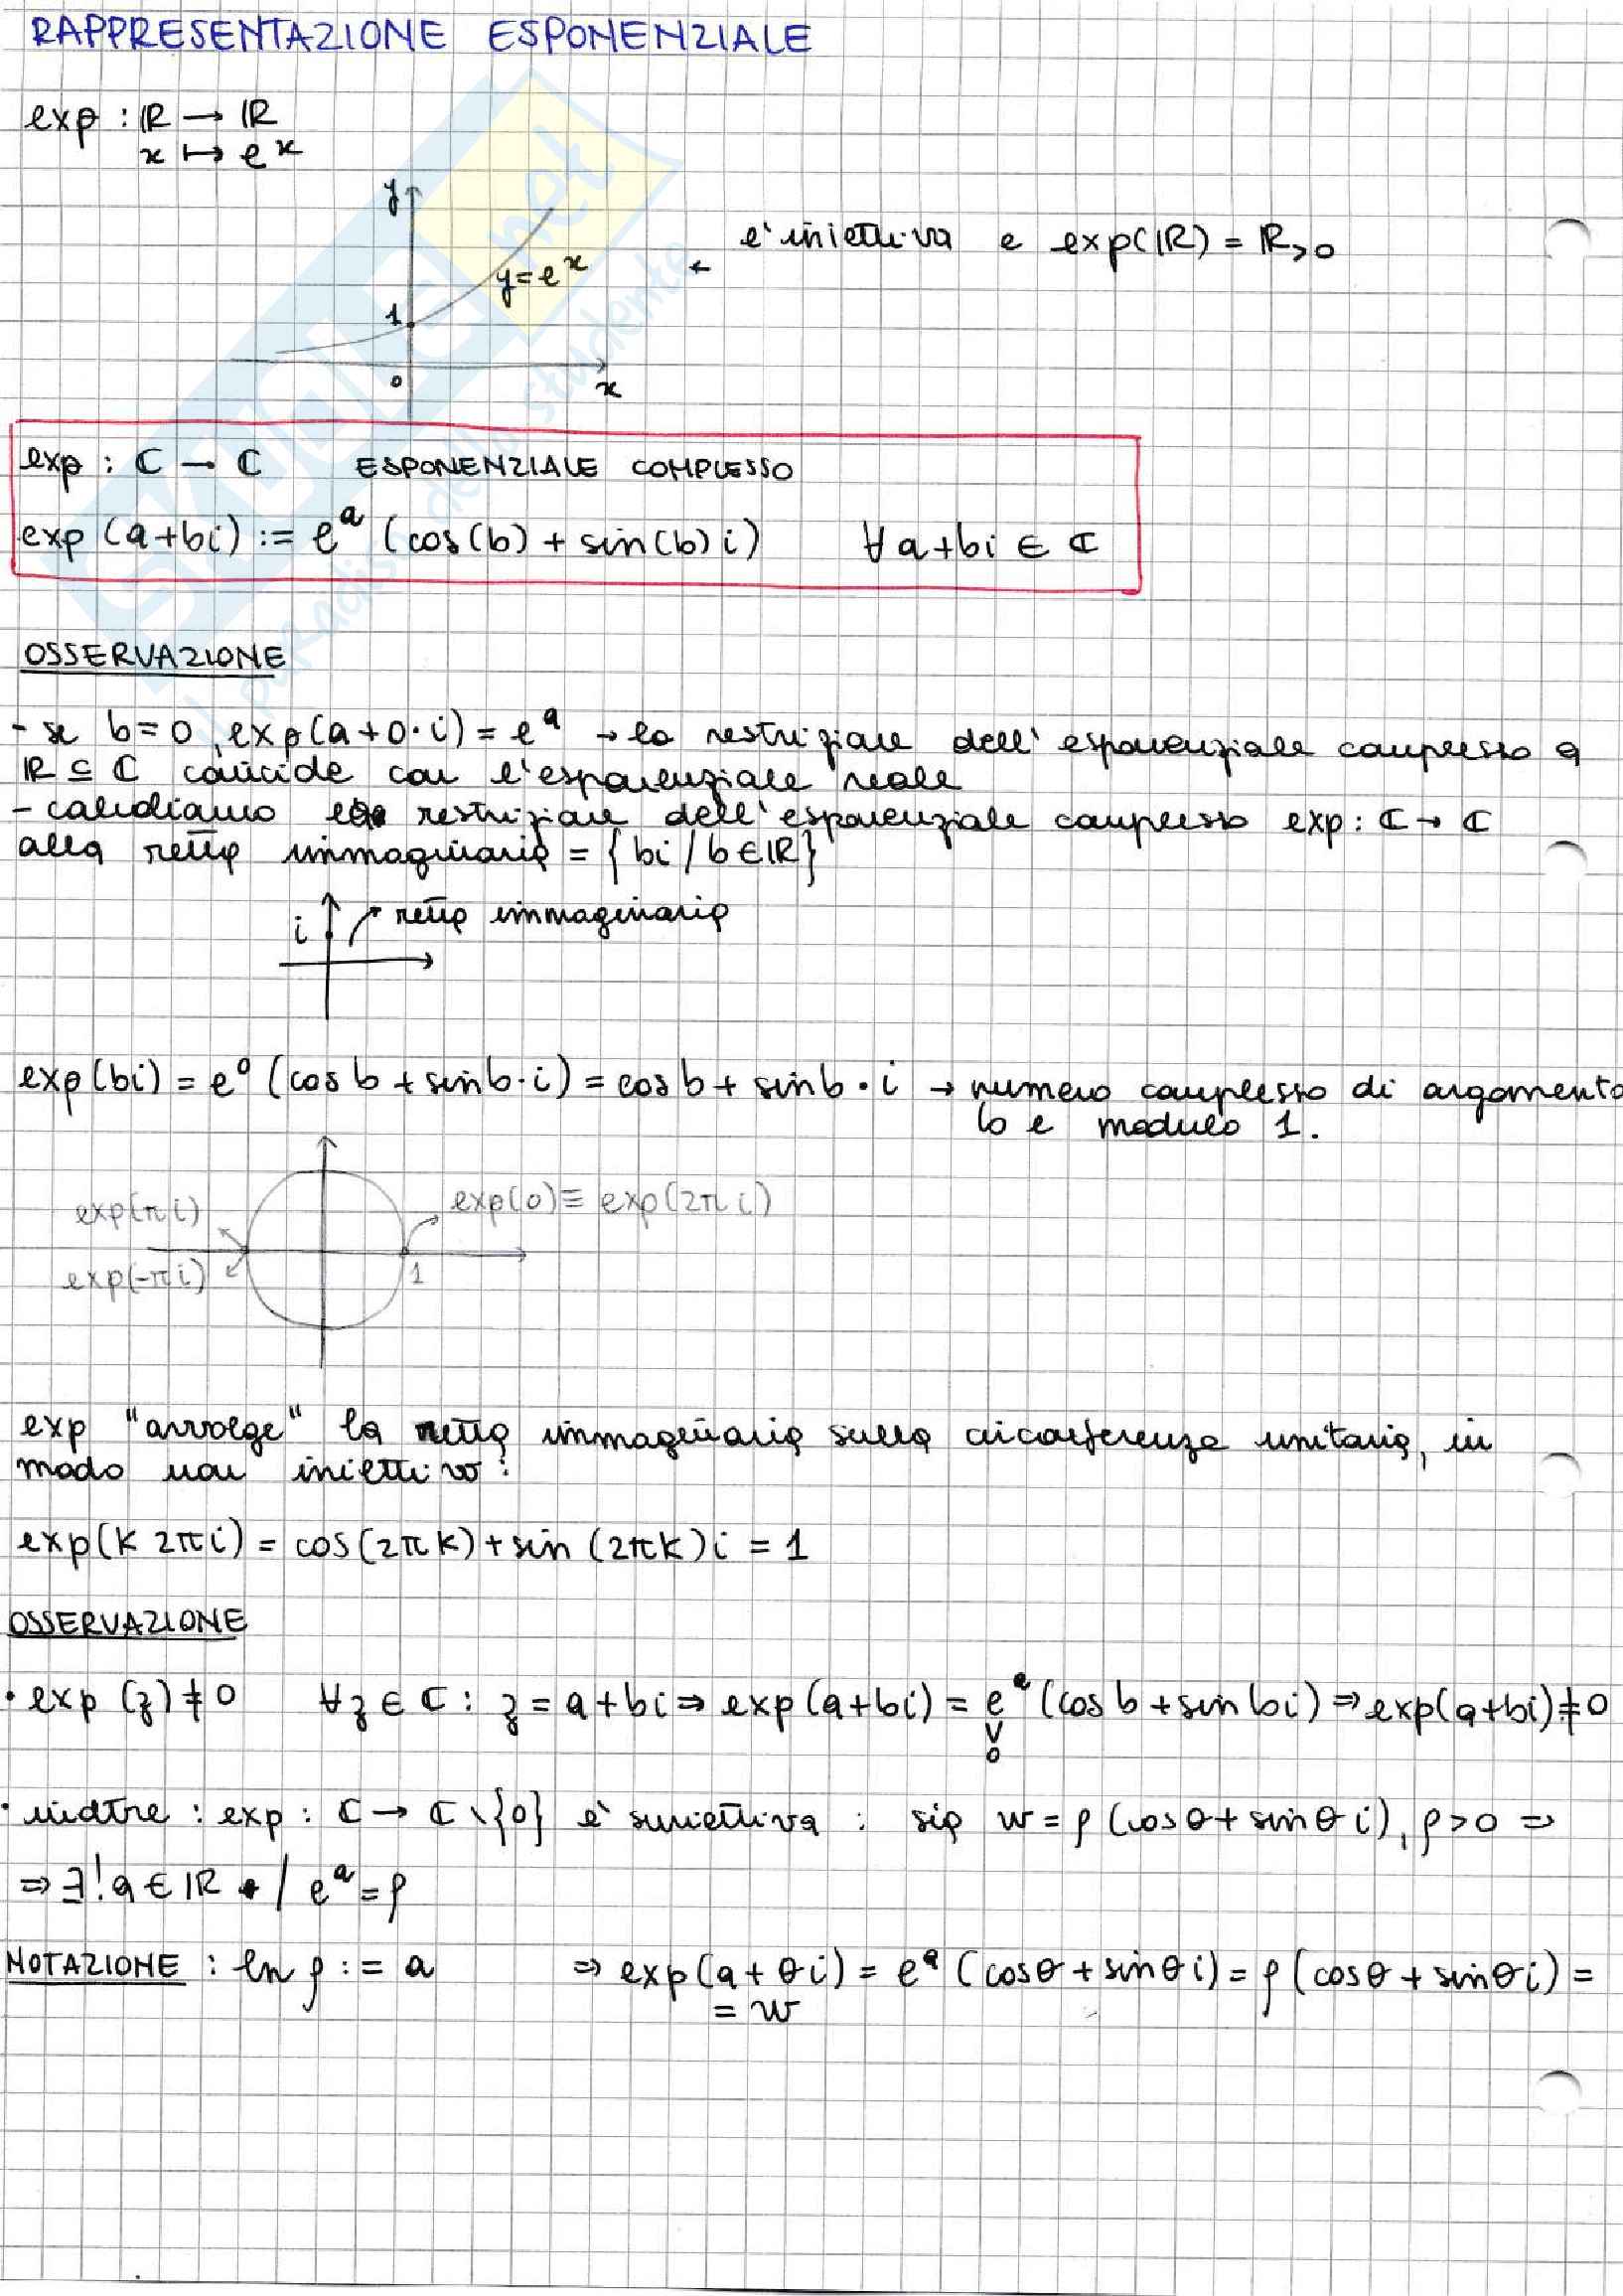 RAPPRESENTAZIONE ESPONENZIALE
exp : ℝ → ℝ
x ↦ eˣ
y
è iniettiva e exp(ℝ) = ℝ>0
←
y=eˣ
1
0
x
exp : ℂ → ℂ ESPONENZIALE COMPLESSO
exp (a+bi) := eᵃ (cos(b) + sin(b) i) ∀ a+bi ∈ ℂ
OSSERVAZIONE
- se b=0, exp(a+0·i) = eᵃ → la restrizione dell'esponenziale complesso a
ℝ ⊆ ℂ coincide con l'esponenziale reale
- consideriamo la restrizione dell'esponenziale complesso exp: ℂ → ℂ
alla retta immaginaria = {bi / b ∈ ℝ}
i retta immaginaria
exp(bi) = e⁰ (cos b + sin b·i) = cos b + sin b · i → numero complesso di argomento
b e modulo 1.
exp(πi) exp(0) ≡ exp(2πi)
exp(-πi) 1
exp "avvolge" la retta immaginaria sulla circonferenza unitaria, in
modo non iniettivo:
exp(k 2πi) = cos(2πk) + sin (2πk)i = 1
OSSERVAZIONE
· exp (z) ≠ 0 ∀z ∈ ℂ : z = a+bi ⇒ exp(a+bi) = eᵃ (cos b + sin bi) ⇒ exp(a+bi) ≠ 0
∨
0
· inoltre : exp : ℂ → ℂ \ {0} è suriettiva : sia w = ρ (cos θ + sin θ i), ρ>0 ⇒
⇒ ∃! a ∈ ℝ / eᵃ = ρ
NOTAZIONE : ln ρ := a ⇒ exp(a+θi) = eᵃ (cosθ + sinθ i) = ρ (cosθ + sinθ i) =
= w